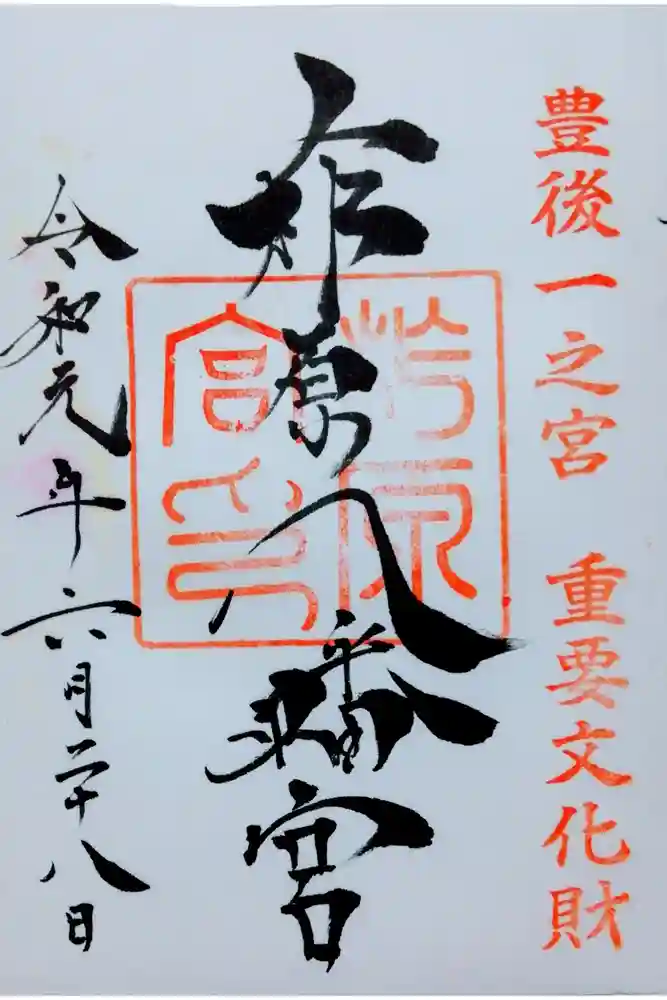 豊後一之宮　重要文化財
柞原八幡宮
柞原宮印
令和元年六月二十八日